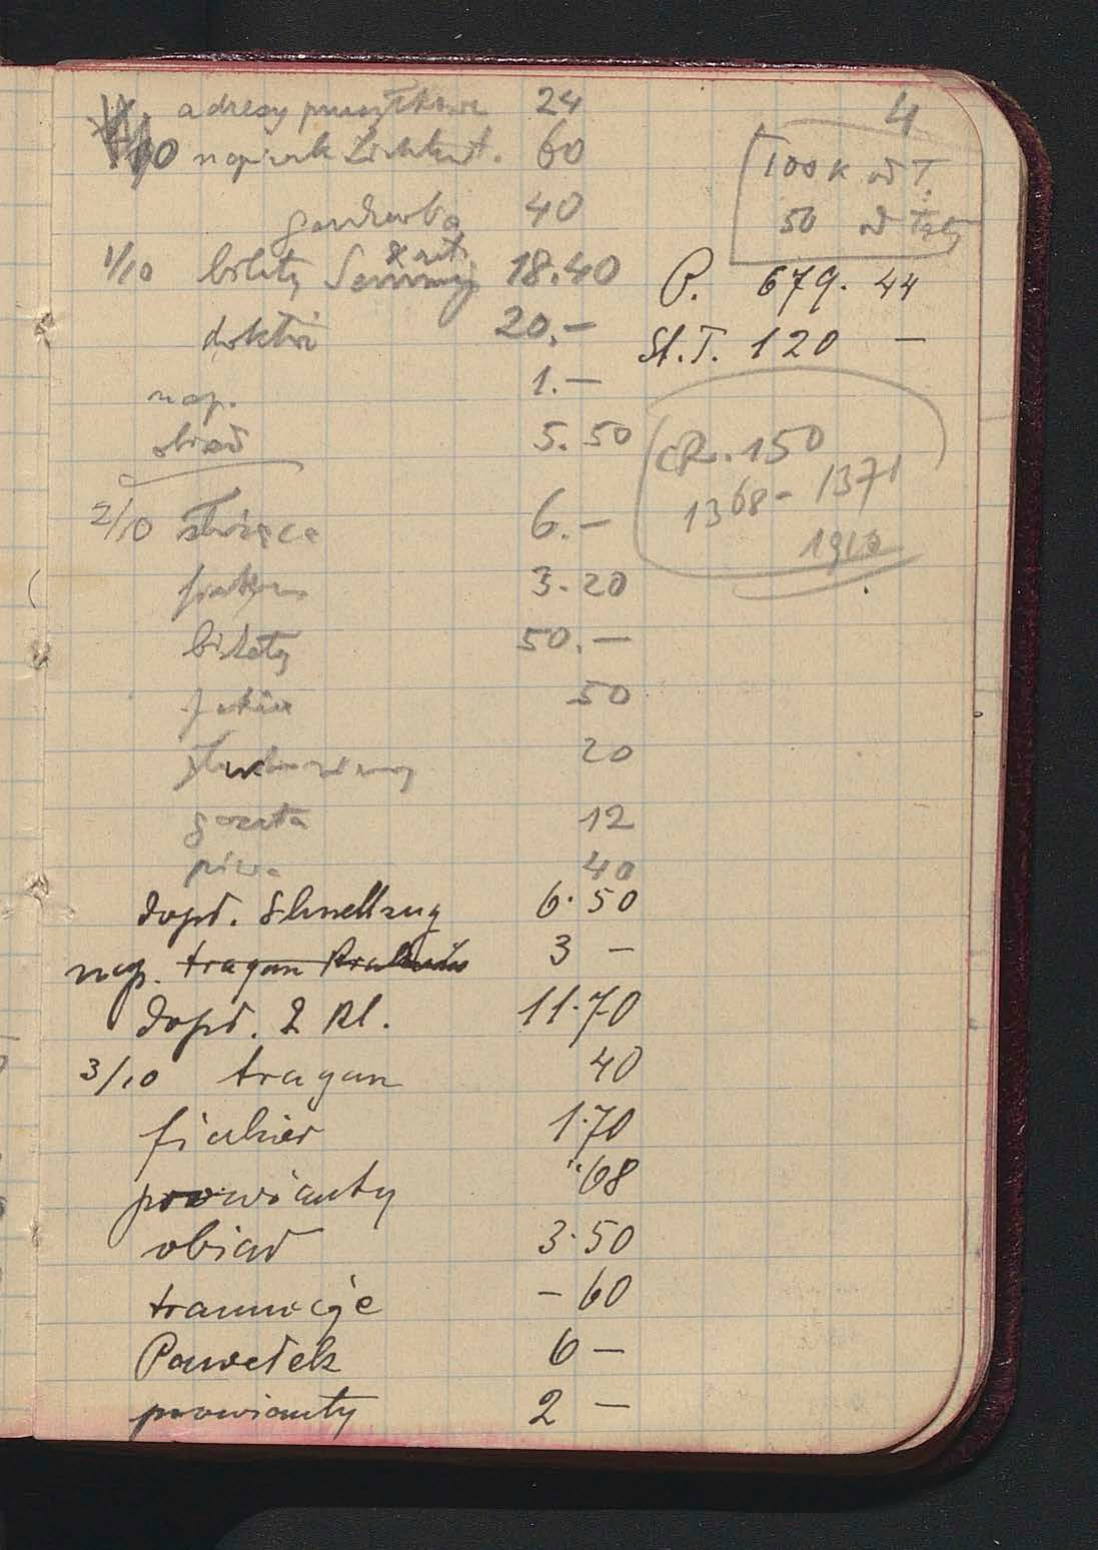 4
adresy 24
10 napiwek 60
garderoba 40
1/10 bilety 18.40
20.–
nap. 1.–
obiad 5.50
2/10 służąca 6.–
3.20
bilety 50.–
50
20
gazeta 12
piwo 40
dopł. Schnellzug 6.50
nap. tragarz 3 –
dopł. 2 Kl. 11.70
3/10 tragarz 40
fiakier 1.70
prowianty "68
obiad 3.50
tramwaje – 60
Pawełek 6 –
prowianty 2 –
100 K od T.
50 od Taty
P. 679.44
St.T. 120 –
CR. 150
1368 – 1371